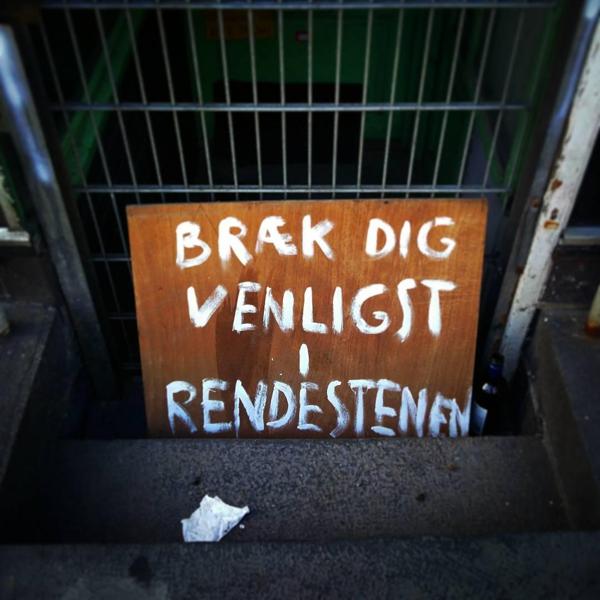 BRÆK DIG
VENLIGST
I
RENDESTENEN